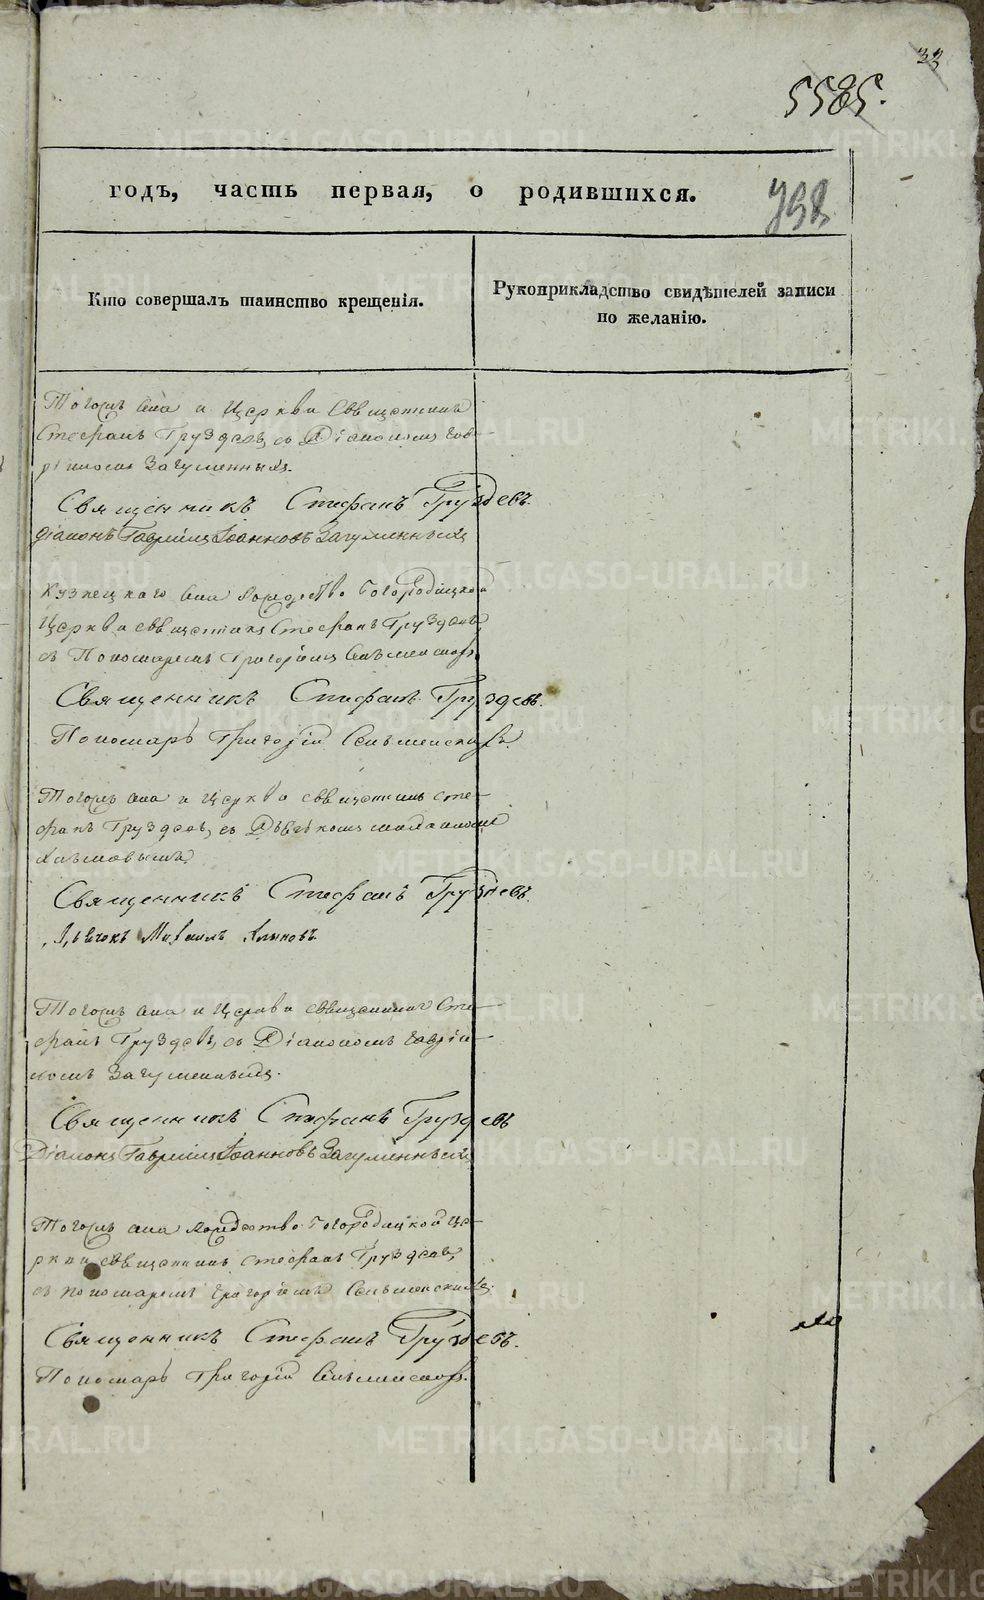 33
5585.
792
годъ, часть первая, о родившихся.
Кто совершалъ таинство крещенія.
Рукоприкладство свидѣтелей записи
по желанію.
Тогожъ и Церкви Священникъ
Стефанъ Груздевъ, съ Діакономъ Гав-
Загуменныхъ.
Священникъ Стефанъ Груздевъ.
Діаконъ Гавріилъ Іоанновъ Загуменныхъ
Кузнецкаго Рождество Богородицкой
Церкви священникъ Стефанъ Груздевъ,
съ Пономаремъ Григоріемъ
Священникъ Стефанъ Груздевъ.
Пономарь Григорій
Тогожъ и Церкви священникъ Сте-
фанъ Груздевъ, съ Дьячкомъ Михаиломъ
Священникъ Стефанъ Груздевъ.
Дьячокъ Михаилъ
Тогожъ и Церкви священникъ Сте-
фанъ Груздевъ, съ Діакономъ Гаврі-
Загуменныхъ.
Священникъ Стефанъ Груздевъ
Діаконъ Гавріилъ Іоанновъ Загуменныхъ
Тогожъ Рождество Богородицкой Це-
ркви священникъ Стефанъ Груздевъ,
съ пономаремъ Григоріемъ
Священникъ Стефанъ Груздевъ.
Пономарь Григорій
METRIKI.GASO-URAL.RU